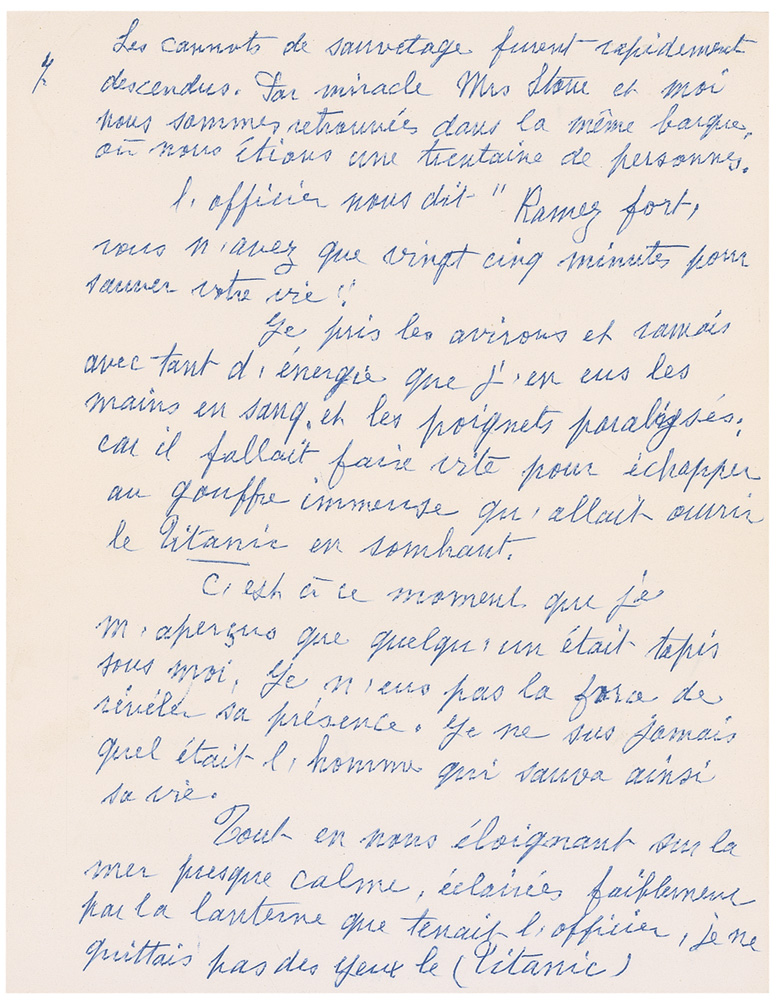 Les cannots de sauvetage furent rapidement
7
descendus. Par miracle Mrs Stone et moi
nous sommes retrouvées dans la même barque,
où nous étions une trentaine de personnes.
l'officier nous dit " Ramez fort,
vous n'avez que vingt cinq minutes pour
sauver votre vie "
Je pris les avirons et ramais
avec tant d'énergie que j'en eus les
mains en sang, et les poignets paralysés,
car il fallait faire vite pour échapper
au gouffre immense qu'allait ouvrir
le Titanic en sombrant.
C'est à ce moment que je
m'aperçus que quelqu'un était tapis
sous moi. Je n'eus pas la force de
révéler sa présence. Je ne sus jamais
quel était l'homme qui sauva ainsi
sa vie.
Tout en nous éloignant sur la
mer presque calme, éclairées faiblement
par la lanterne que tenait l'officier, je ne
quittais pas des yeux le (Titanic)